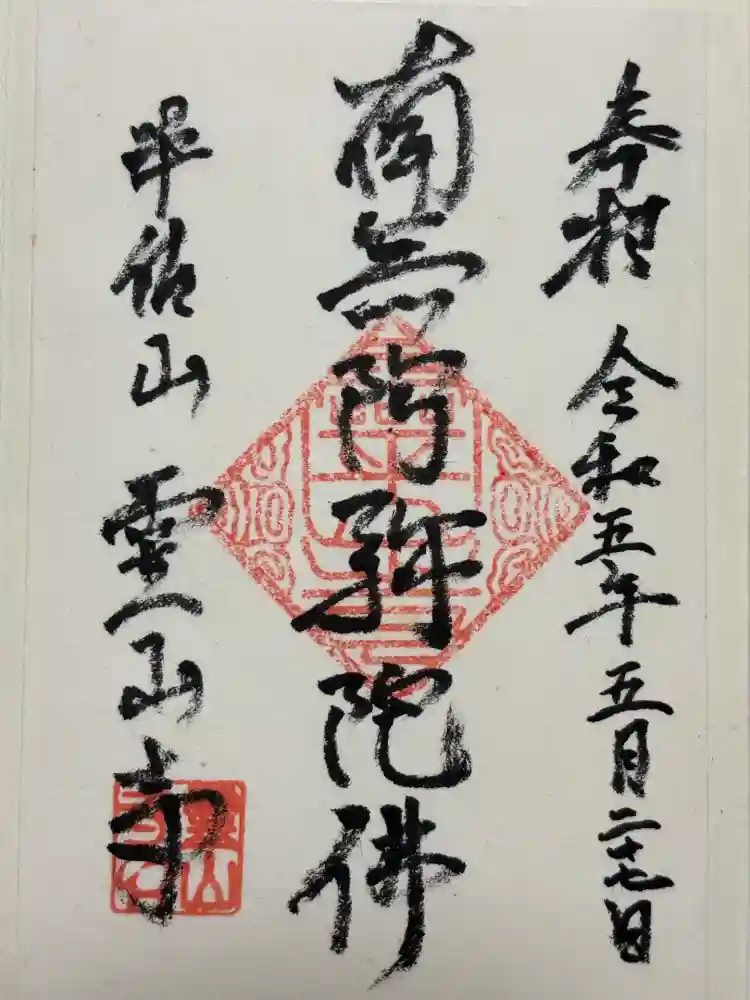 奉拝 令和五年五月二十七日
南無阿弥陀佛
山 霊山寺